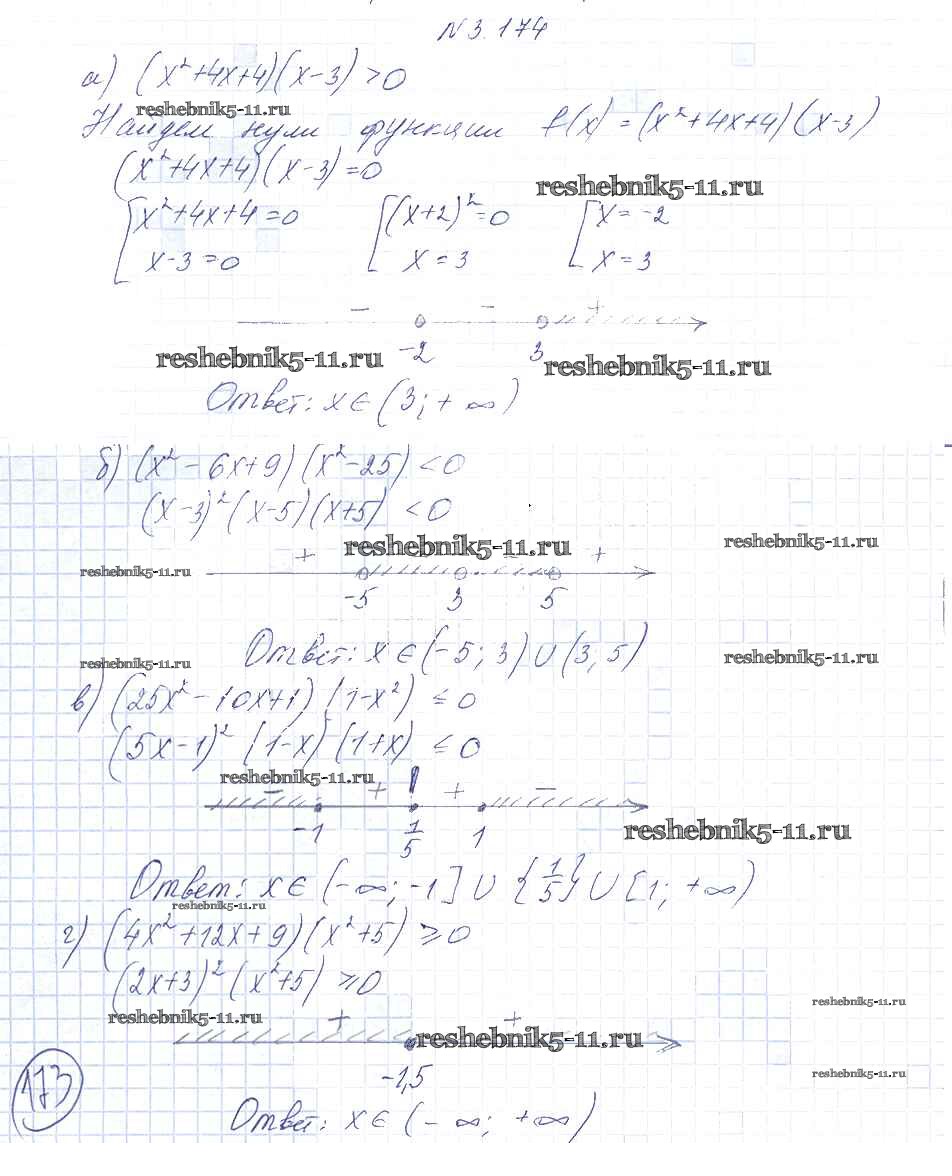 N 3.174
а) (x²+4x+4)(x-3) >0
reshebnik5-11.ru
Найдем нули функции f(x) = (x²+4x+4)(x-3)
(x²+4x+4)(x-3)=0
reshebnik5-11.ru
[x²+4x+4=0 [(x+2)²=0 [x=-2
x-3=0 x=3 x=3
- - +
-2 3
reshebnik5-11.ru reshebnik5-11.ru
Ответ: x∈(3;+∞)
б) (x²-6x+9)(x²-25)<0
(x-3)²(x-5)(x+5)<0
reshebnik5-11.ru reshebnik5-11.ru
+ +
reshebnik5-11.ru
-5 3 5
Ответ: x∈(-5;3)∪(3;5)
reshebnik5-11.ru reshebnik5-11.ru
в) (25x²-10x+1)(1-x²)≤0
(5x-1)²(1-x)(1+x)≤0
reshebnik5-11.ru
- + ! + -
-1 1/5 1
reshebnik5-11.ru
Ответ: x∈(-∞;-1]∪{1/5}∪[1;+∞)
reshebnik5-11.ru
г) (4x²+12x+9)(x²+5)≥0
(2x+3)²(x²+5)≥0
reshebnik5-11.ru
reshebnik5-11.ru
+ +
reshebnik5-11.ru
-1,5
reshebnik5-11.ru
173
Ответ: x∈(-∞;+∞)